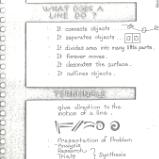 WHAT DOES A
LINE DO ?
It connects objects
It separates objects
It divides area into many little parts.
It forever moves.
It decorates the surface.
It outlines objects.
TECHNIQUE
give direction to the
motion of a line.
Presentation of Problem
Analysis
Research
Trials
Synthesis